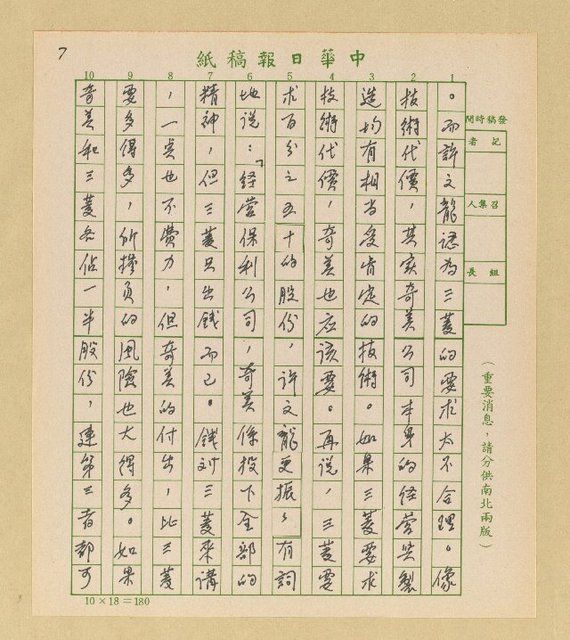 7
中華日報稿紙
10 9 8 7 6 5 4 3 2 1
發稿時間
記者
召集人
組長
(重要消息,請分供南北兩版)
。而許文龍認為三菱的要求太不合理。像
技術代價,其實奇美公司本身的經營與製
造均有相當受肯定的技術。如果三菱要求
技術代價,奇美也应該要。再說,三菱要
求百分之五十的股份,許文龍更振々有詞
地說:「経營保利公司,奇美係投下全部的
精神,但三菱只出銭而已。銭对三菱來講
,一点也不費力,但奇美的付出,比三菱
要多得多,所擔負的風險也大得多。如果
奇美和三菱各佔一半股份,連第三者都可
10×18=180